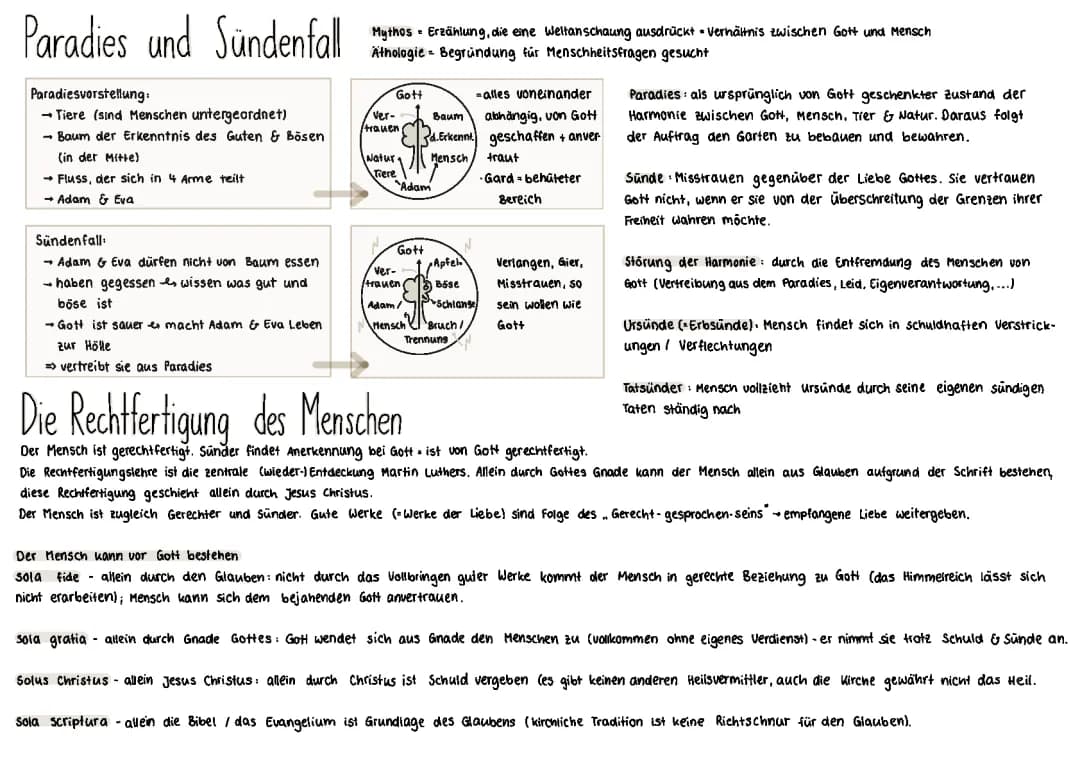 Paradies und Sündenfall
Mythos = Erzählung, die eine Weltanschaung ausdrückt = Verhälnis zwischen Gott und Mensch
Äthologie = Begründung für Menschheitsfragen gesucht
Paradiesvorstellung:
→ Tiere (sind Menschen untergeordnet)
→ Baum der Erkenntnis des Guten & Bösen
(in der Mitte)
→ Fluss, der sich in 4 Arme teilt
→ Adam & Eva
Gott
Ver-
trauen
Baum
d.Erkennt.
Natur
Mensch
Tiere
Adam
=alles voneinander
abhängig, von Gott
geschaffen + anver
traut
·Gard = behüteter
Bereich
Paradies: als ursprünglich von Gott geschenkter Zustand der
Harmonie zwischen Gott, Mensch, Tier & Natur. Daraus folgt
der Auftrag den Garten zu bebauen und bewahren.
Sünde: Misstrauen gegenüber der Liebe Gottes. Sie vertrauen
Gott nicht, wenn er sie von der Überschreitung der Grenzen ihrer
Freiheit wahren möchte.
Sündenfall:
→ Adam & Eva dürfen nicht von Baum essen
→ haben gegessen ↳ wissen was gut und
böse ist
→ Gott ist sauer ↳ macht Adam & Eva Leben
zur Hölle
⇒ vertreibt sie aus Paradies
Gott
Apfel
Ver-
trauen
Böse
Adam/
Schlange
Mensch
Bruch/
Trennung
Verlangen, Gier,
Misstrauen, so
sein wollen wie
Gott
Störung der Harmonie: durch die Entfremdung des Menschen von
Gott (Vertreibung aus dem Paradies, Leid, Eigenverantwortung,...)
Ursünde (=Erbsünde): Mensch findet sich in schuldhaften Verstrick-
ungen / Verflechtungen
Tatsünder: Mensch vollzieht Ursünde durch seine eigenen sündigen
Taten ständig nach
Die Rechtfertigung des Menschen
Der Mensch ist gerechtfertigt. Sünder findet Anerkennung bei Gott = ist von Gott gerechtfertigt.
Die Rechtfertigungslehre ist die zentrale (Wieder-)Entdeckung Martin Luthers. Allein durch Gottes Gnade kann der Mensch allein aus Glauben aufgrund der Schrift bestehen,
diese Rechtfertigung geschieht allein durch Jesus Christus.
Der Mensch ist zugleich Gerechter und Sünder. Gute Werke (=Werke der Liebe) sind Folge des „Gerecht-gesprochen-seins" → empfangene Liebe weitergeben.
Der Mensch kann vor Gott bestehen
Sola fide - allein durch den Glauben: nicht durch das Vollbringen guter Werke kommt der Mensch in gerechte Beziehung zu Gott (das Himmelreich lässt sich
nicht erarbeiten); Mensch kann sich dem bejahenden Gott anvertrauen.
Sola gratia - allein durch Gnade Gottes: Gott wendet sich aus Gnade den Menschen zu (vollkommen ohne eigenes Verdienst) - er nimmt sie trotz Schuld & Sünde an.
Solus Christus - allein Jesus Christus: allein durch Christus ist Schuld vergeben (es gibt keinen anderen Heilsvermittler, auch die Kirche gewährt nicht das Heil.
Sola Scriptura - allein die Bibel / das Evangelium ist Grundlage des Glaubens (kirchliche Tradition ist keine Richtschnur für den Glauben).